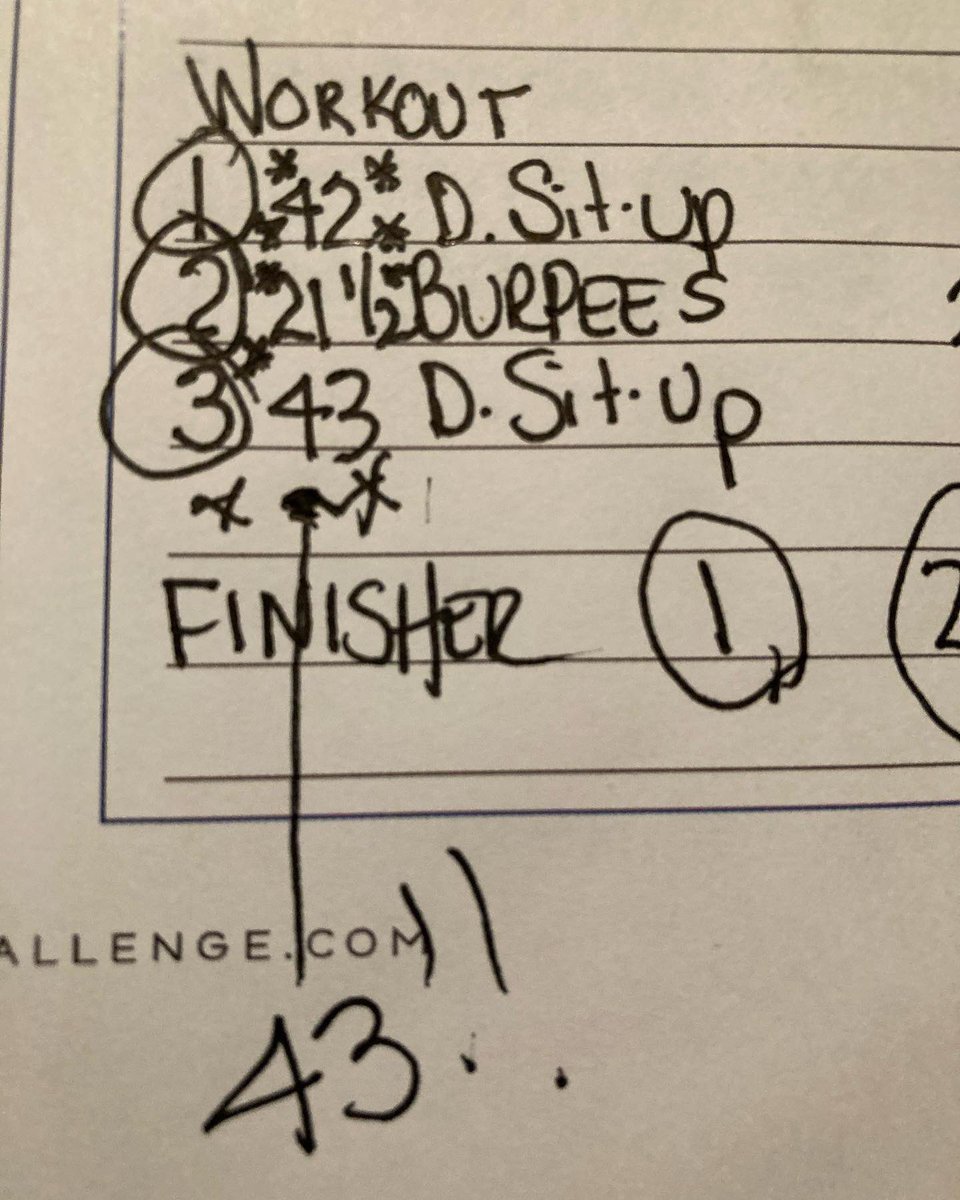 WORKOUT
1 *42* D. Sit-up
2 *21 1/2* BURPEES
3 *43 D. Sit-Up
* *
FINISHER 1 2
ALLENGE.COM !!
43